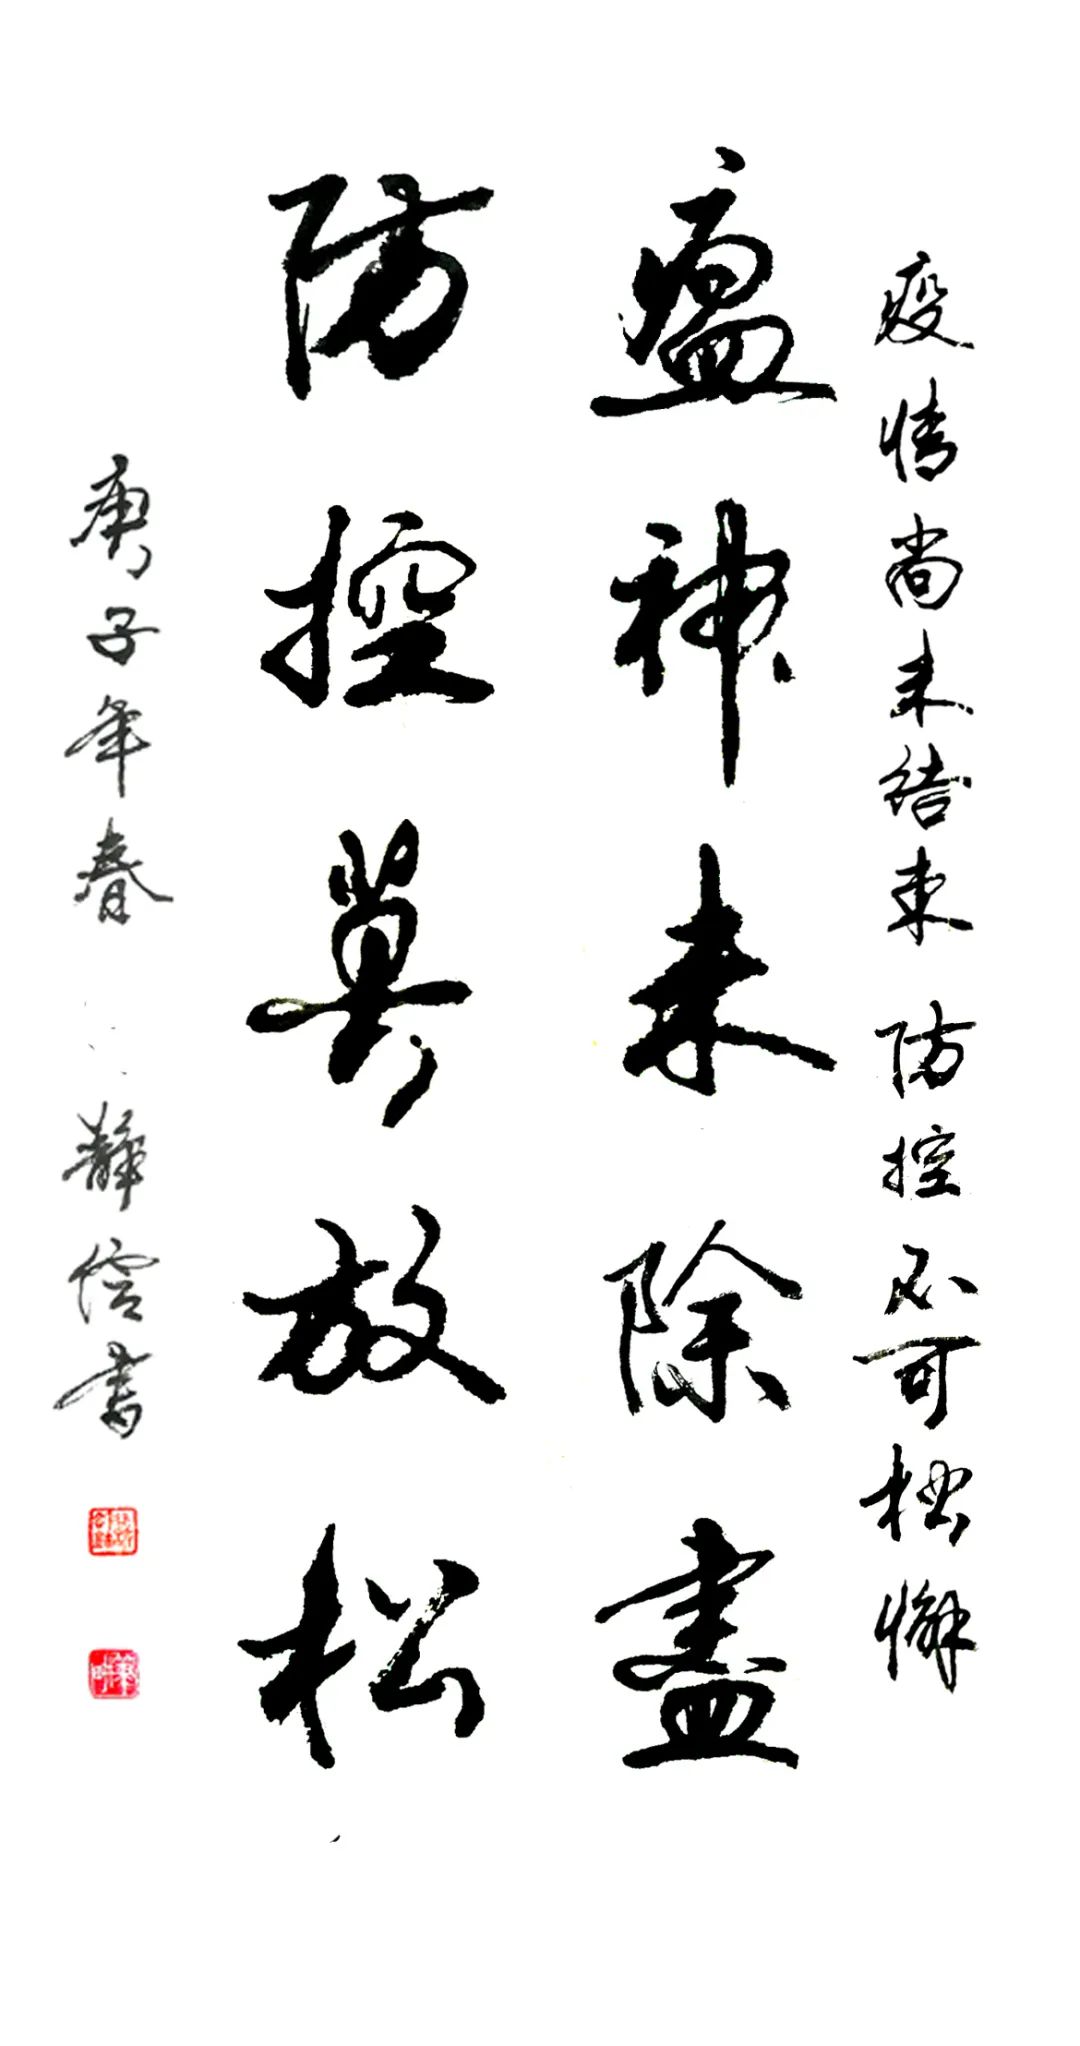 疫情尚未结束 防控不可松懈
瘟神未除盡
防控莫放松
庚子年春 静 书